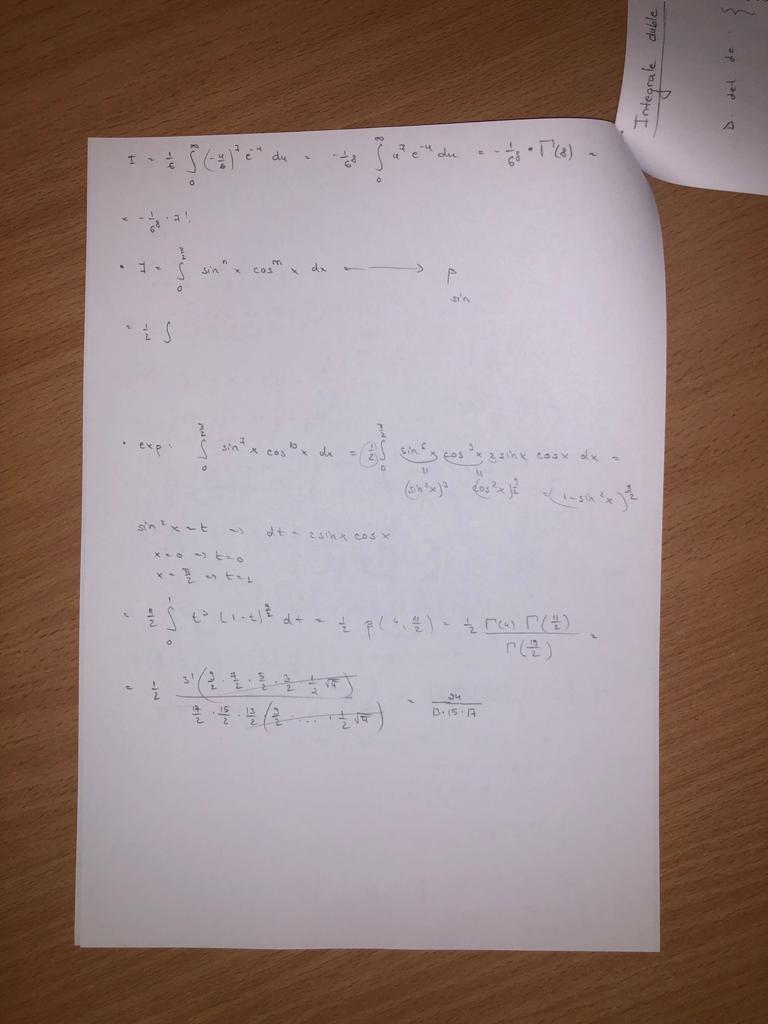 I = 1/6 ∫₀^∞ (-u/6)⁷ e^-u du = -1/6⁸ ∫₀^∞ u⁷ e^-u du = -1/6⁸ · Γ(8) =
= -1/6⁸ · 7!
• I = ∫₀^π/2 sinⁿ x cosᵐ x dx ⟶ β
sin
= 1/2 ∫
• exp: ∫₀^π/2 sin⁷ x cos¹⁰ x dx = 1/2 ∫₀^π/2 sin⁶ x cos⁹ x 2 sin x cos x dx =
(sin² x)³ (cos² x)^9/2 = (1 - sin² x)^9/2
sin² x = t => dt = 2 sin x cos x
x = 0 => t = 0
x = π/2 => t = 1
= 1/2 ∫₀¹ t³ (1 - t)^9/2 dt = 1/2 β(4, 11/2) = 1/2 Γ(4) Γ(11/2) / Γ(19/2) =
= 1/2 3! (9/2 · 7/2 · 5/2 · 3/2 · 1/2 √π) / 17/2 · 15/2 · 13/2 (9/2 · ... · 1/2 √π) = 24 / 13 · 15 · 17
Integrale duble
D. del de. {